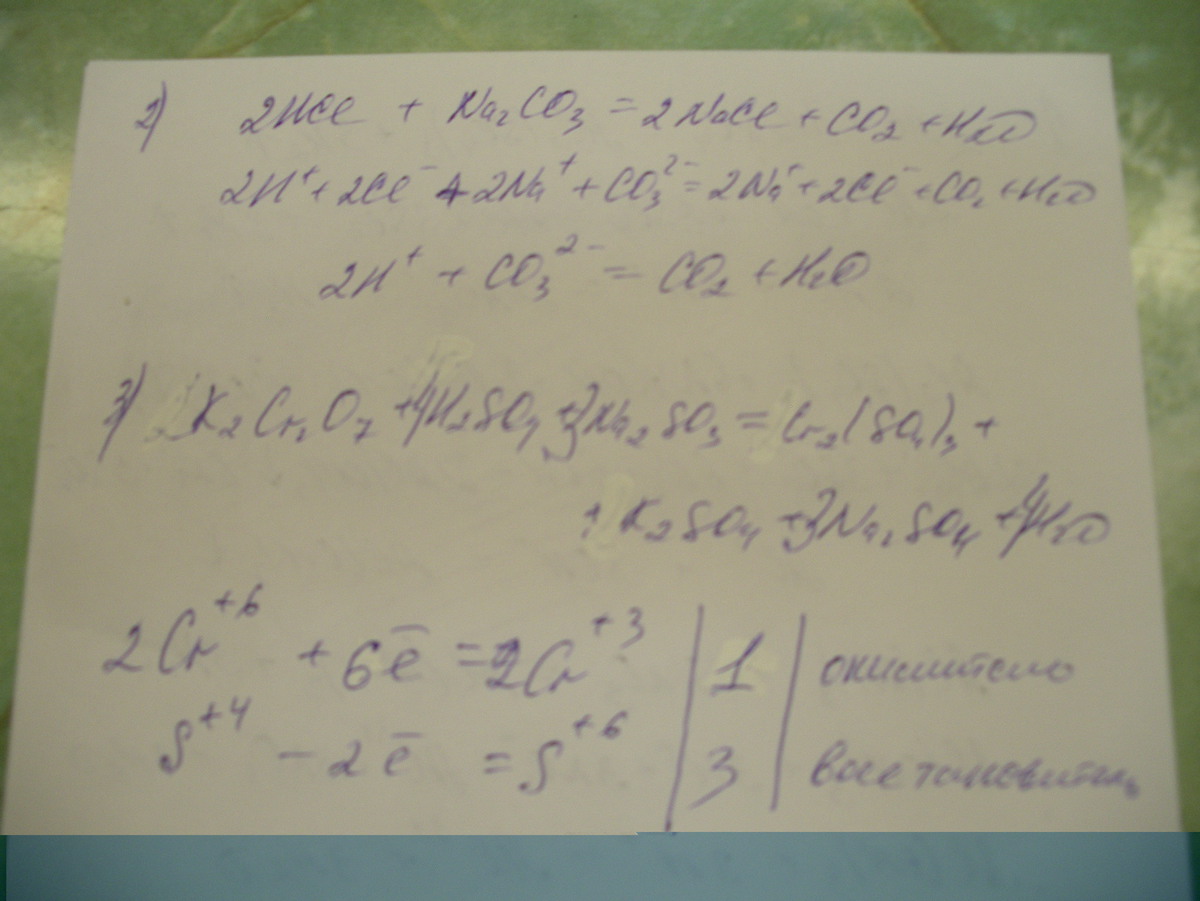 2) 2HCl + Na₂CO₃ = 2NaCl + CO₂ + H₂O
2H⁺ + 2Cl⁻ + 2Na⁺ + CO₃²⁻ = 2Na⁺ + 2Cl⁻ + CO₂ + H₂O
2H⁺ + CO₃²⁻ = CO₂ + H₂O
3) K₂Cr₂O₇ + 4H₂SO₄ + 3Na₂SO₃ = Cr₂(SO₄)₃ +
+ K₂SO₄ + 3Na₂SO₄ + 4H₂O
2Cr⁺⁶ + 6e̅ = 2Cr⁺³ | 1 | окислитель
S⁺⁴ − 2e̅ = S⁺⁶ | 3 | восстановитель